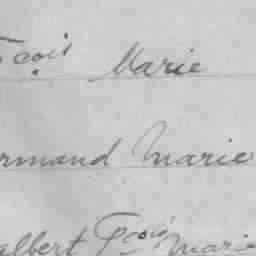 çois Marie
rmand Marie
albert Fçois Marie